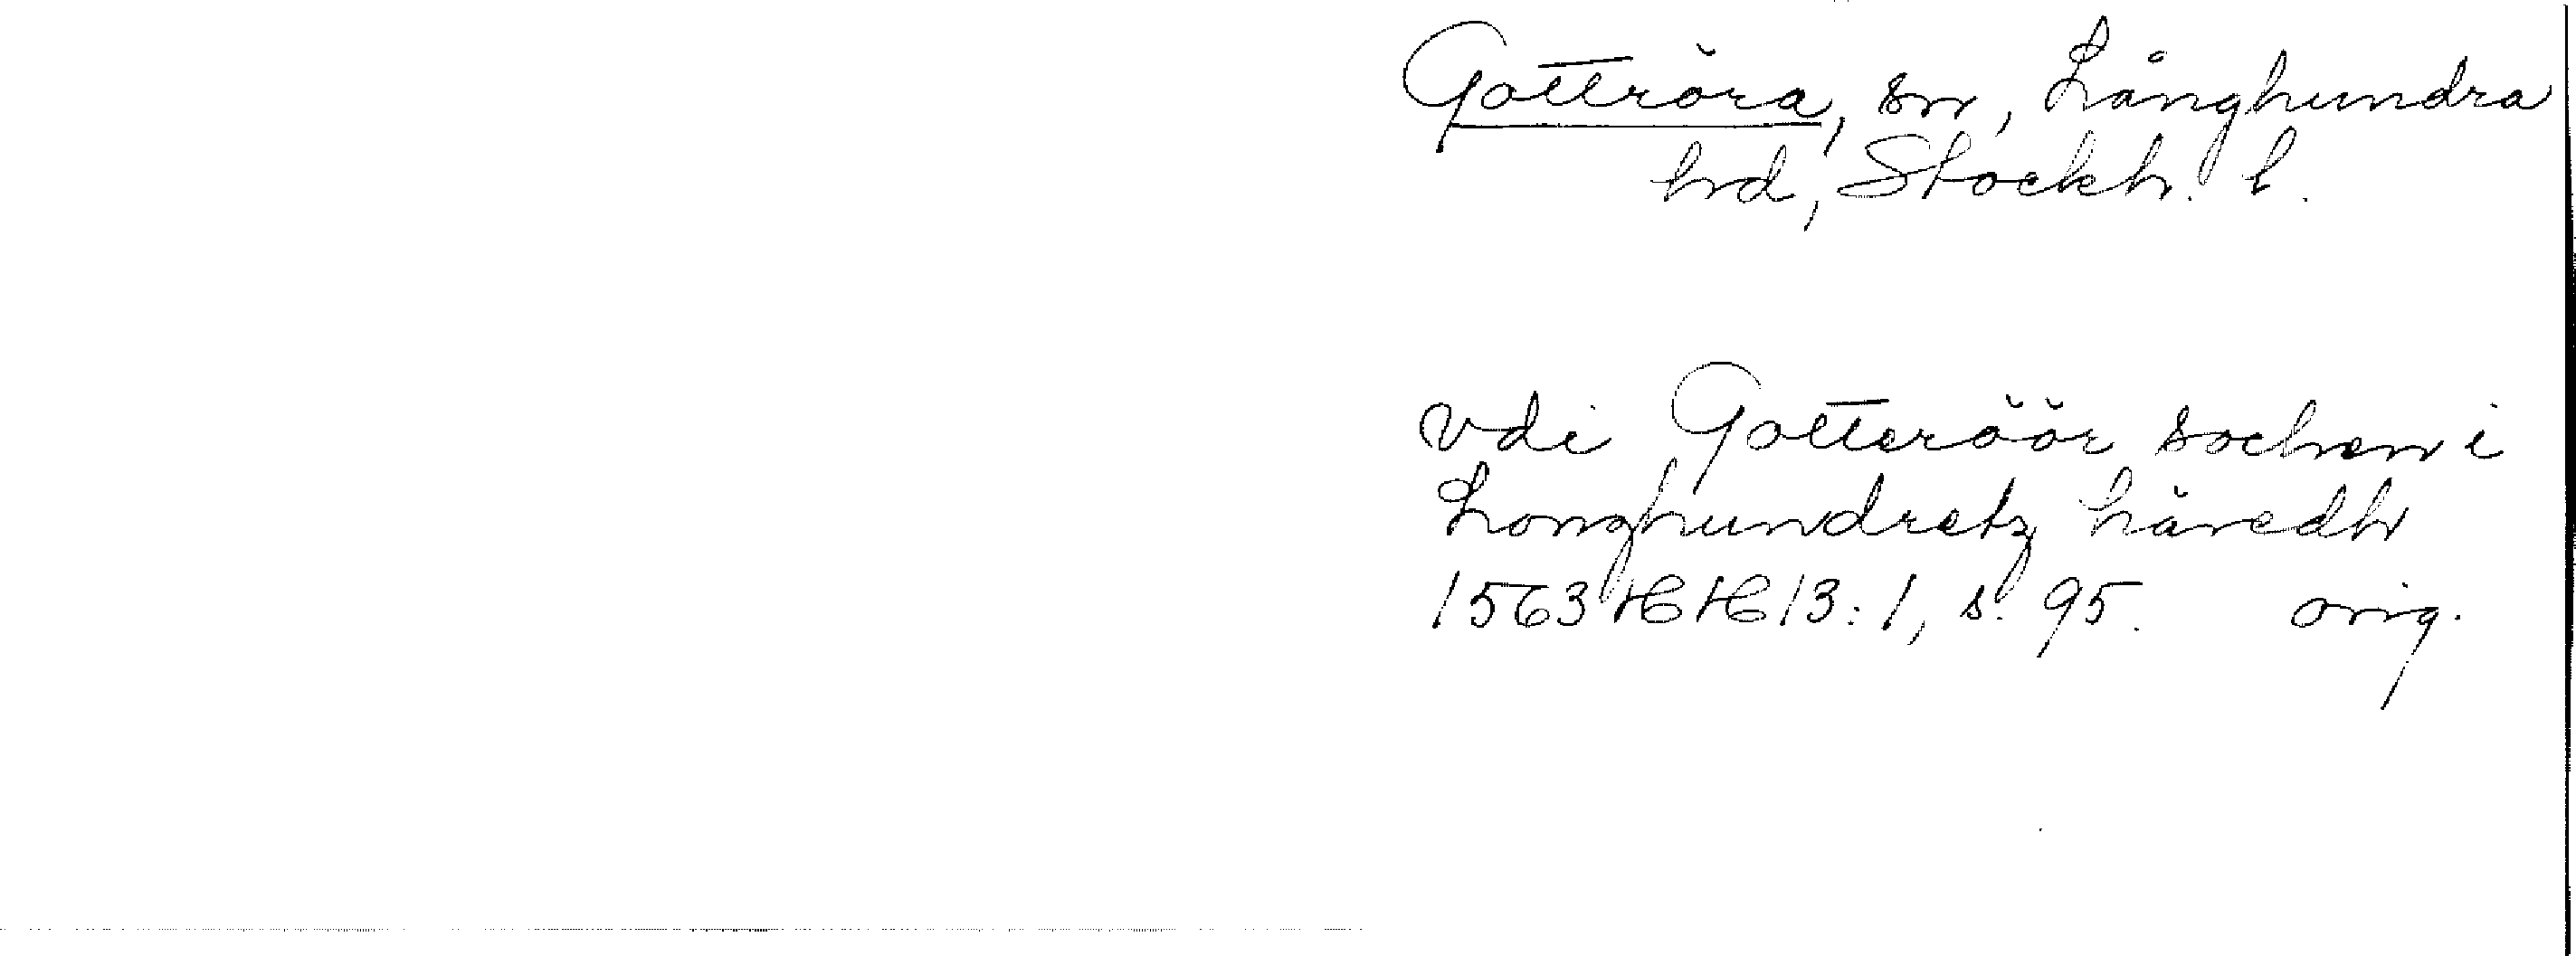 Gottröra, sn, Långhundra
hd, Stockh. l.
vdi Gotteröör sochen i
Longhundretz häredh
1563 HH 13:1, s. 95. orig.